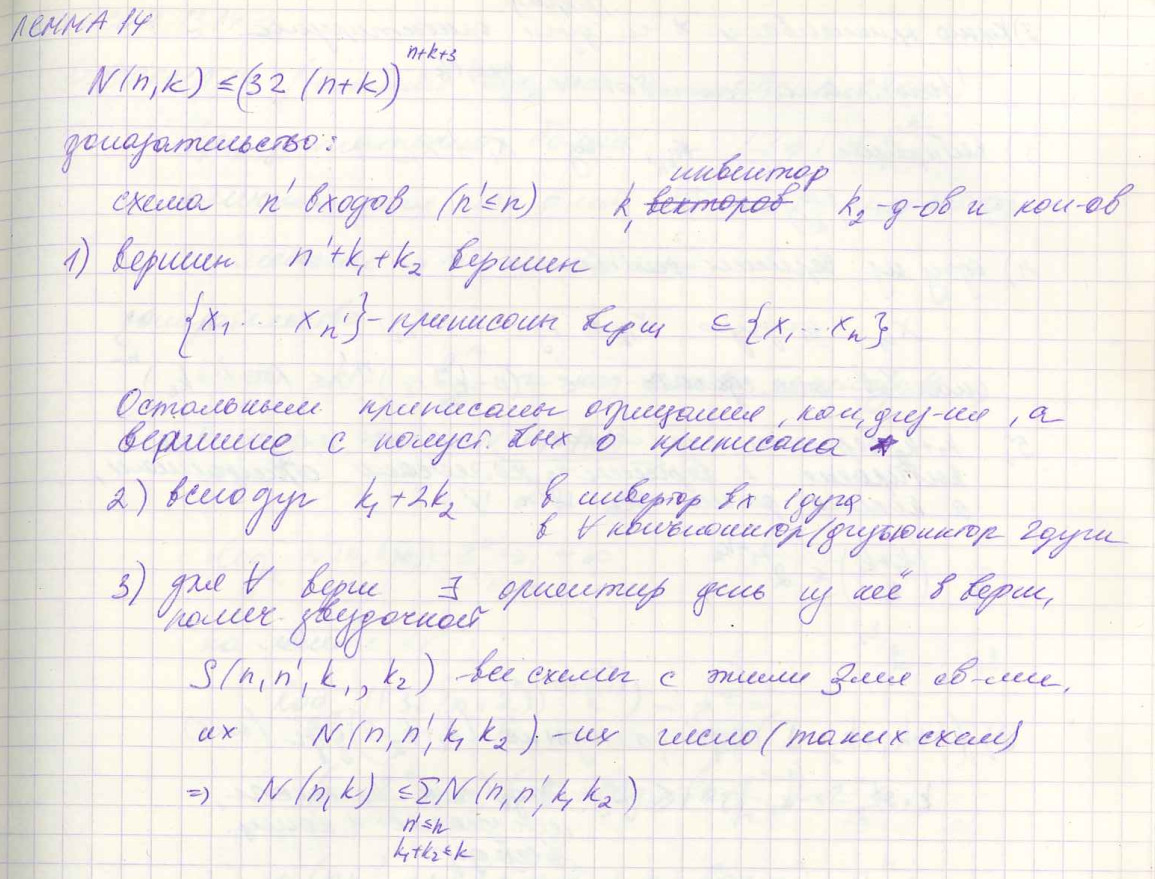 ЛЕММА 14
N(n,k) ≤ (32 (n+k))^{n+k+3}
доказательство:
инвентор
схема n' входов (n' ≤ n) k₁ ~~векторов~~ k₂-д-ов и кон-ов
1) вершин n'+k₁+k₂ вершин
{x₁ ... xₙ'} - приписаны верш ⊆ {x₁ ... xₙ}
Остальным приписаны отрицания, кон, диз-ия, а
вершине с полуст. вых 0 приписана *
2) всего дуг k₁ + 2k₂ в инвертор вх 1 дуга
в ∀ конъюнктор/дизъюнктор 2 дуги
3) для ∀ верш ∃ ориентир цепь из неё в верш,
помеч. звездочкой
S(n,n',k₁,k₂) - все схемы с этими 3мя св-ми,
ах N(n,n',k₁ k₂) - их число (таких схем)
=> N(n,k) ≤ Σ N(n,n',k₁ k₂)
n' ≤ n
k₁+k₂ ≤ k